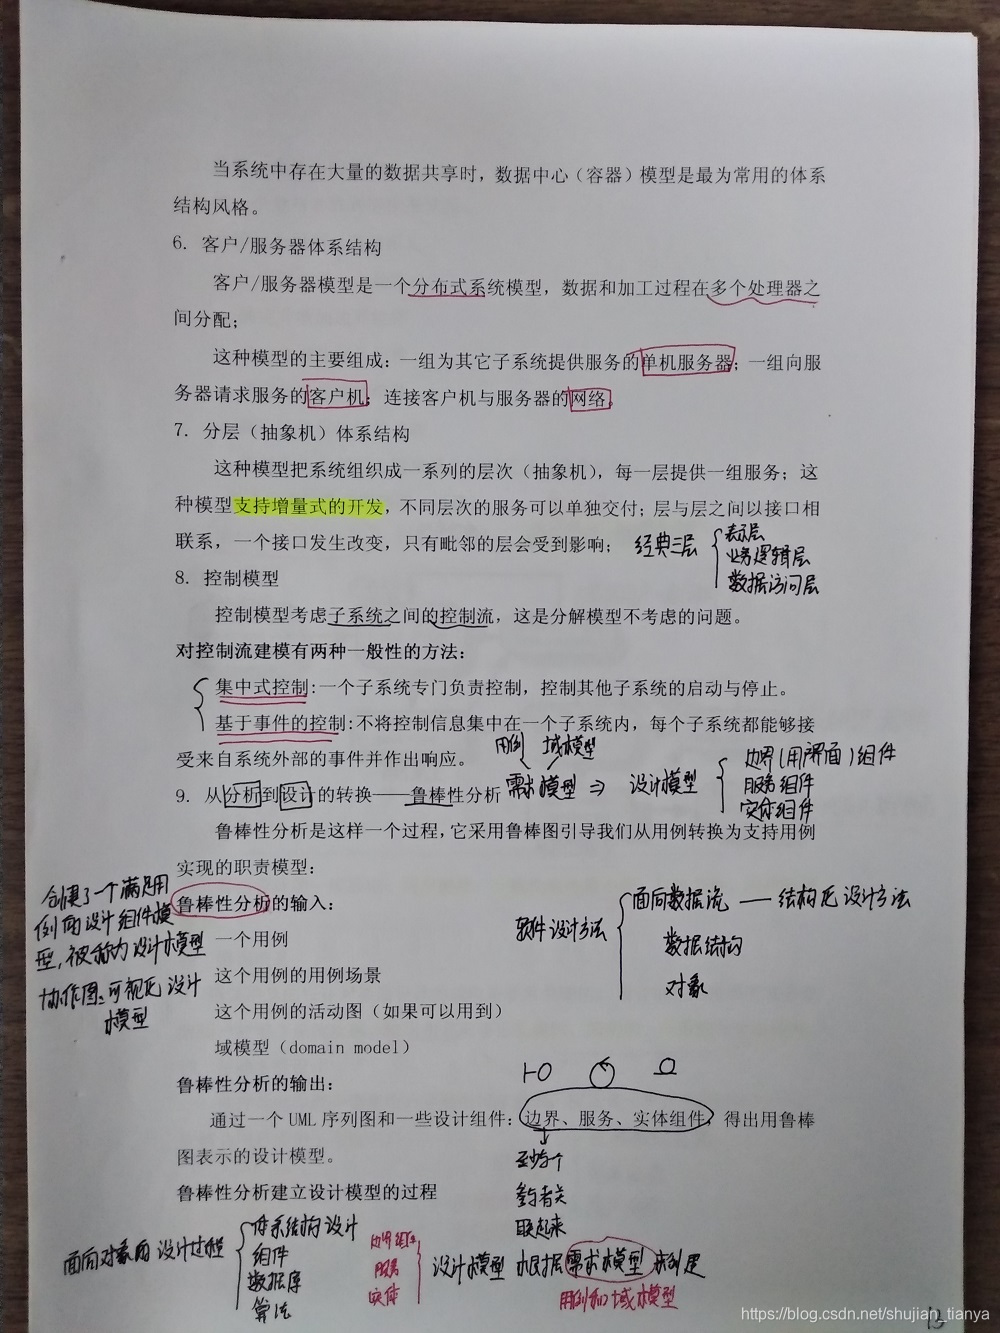 当系统中存在大量的数据共享时，数据中心（容器）模型是最为常用的体系
结构风格。
6. 客户/服务器体系结构
客户/服务器模型是一个分布式系统模型，数据和加工过程在多个处理器之
间分配；
这种模型的主要组成：一组为其它子系统提供服务的单机服务器；一组向服
务器请求服务的客户机；连接客户机与服务器的网络。
7. 分层（抽象机）体系结构
这种模型把系统组织成一系列的层次（抽象机），每一层提供一组服务；这
种模型支持增量式的开发，不同层次的服务可以单独交付；层与层之间以接口相
联系，一个接口发生改变，只有毗邻的层会受到影响；
经典三层
表示层
业务逻辑层
数据访问层
8. 控制模型
控制模型考虑子系统之间的控制流，这是分解模型不考虑的问题。
对控制流建模有两种一般性的方法：
集中式控制：一个子系统专门负责控制，控制其他子系统的启动与停止。
基于事件的控制：不将控制信息集中在一个子系统内，每个子系统都能够接
受来自系统外部的事件并作出响应。
用例 域模型
需求模型 ⇒ 设计模型
边界（用户界面）组件
服务组件
实体组件
9. 从分析到设计的转换——鲁棒性分析
鲁棒性分析是这样一个过程，它采用鲁棒图引导我们从用例转换为支持用例
实现的职责模型：
创建了一个满足用
例的设计组件模
型，被称为设计模型
协作图：可视化设计
模型
鲁棒性分析的输入：
软件设计方法
面向数据流 —— 结构化设计方法
数据结构
对象
一个用例
这个用例的用例场景
这个用例的活动图（如果可以用到）
域模型（domain model）
鲁棒性分析的输出：
通过一个 UML 序列图和一些设计组件：边界、服务、实体组件，得出用鲁棒
图表示的设计模型。
至少有个
参与者关
联起来
鲁棒性分析建立设计模型的过程
面向对象的设计过程
体系结构设计
组件
数据库
算法
边界组件
服务
实体
设计模型 根据需求模型来创建
用例和域模型
13
https://blog.csdn.net/shujian_tianya